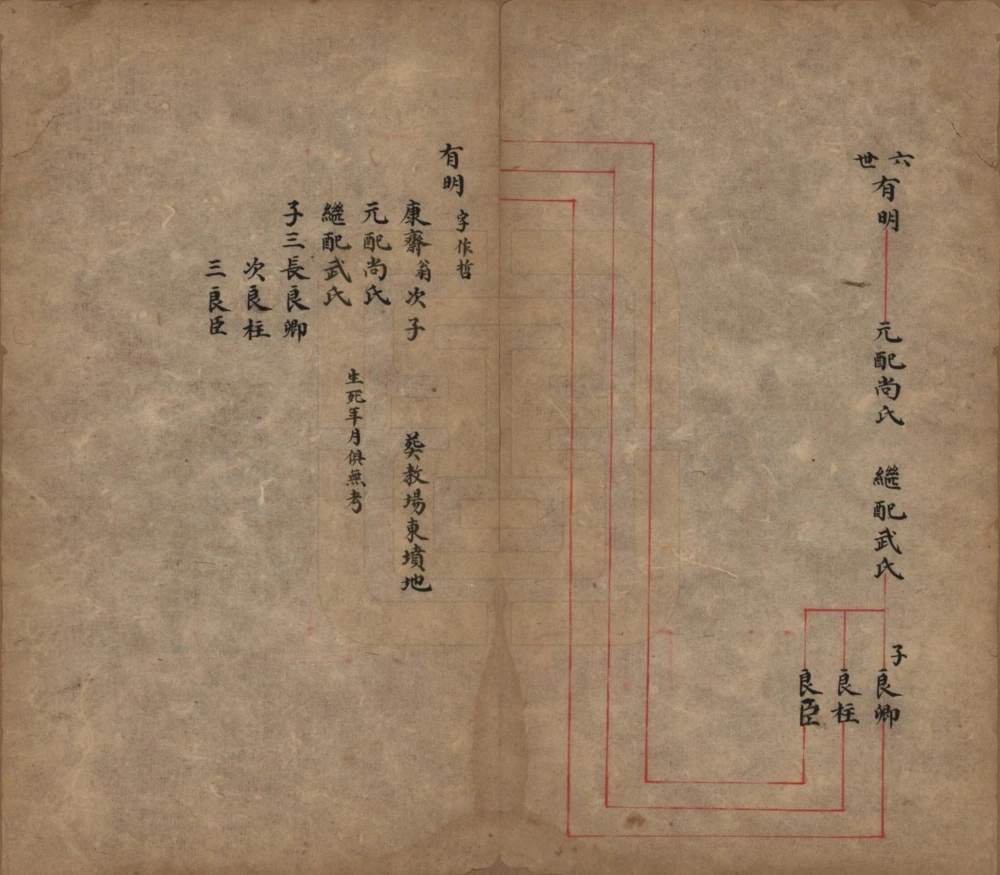 六世
有明
元配尚氏　繼配武氏
子
良卿
良柱
良臣
有明 字作哲
康齋翁次子　葬教場東墳地
元配尚氏
繼配武氏　生死年月俱無考
子三長良卿
次良柱
三良臣